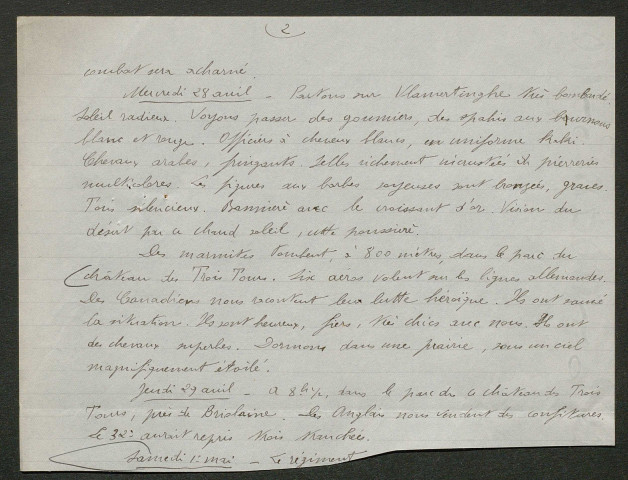 2
combat sera acharné.
Mercredi 28 avril - Partons sur Vlamertinghe très bombardé.
Soleil radieux. Voyons passer des goumiers, des spahis aux burnous
blanc et rouges. Officiers à cheveux blancs, en uniforme kaki.
Chevaux arabes, fringants. Selles richement incrustées de pierreries
multicolores. Les figures aux barbes soyeuses sont bronzées, graves.
Tous silencieux. Bannière avec le croissant d'or. Vision du
désert par ce chaud soleil, cette poussière.
Des marmites tombent, à 800 mètres, dans le parc du
château des Trois Tours. Six aéros volent sur les lignes allemandes.
Des Canadiens nous racontent leur lutte héroïque. Ils ont sauvé
la situation. Ils sont heureux, fiers, très chics avec nous. Ils ont
des chevaux superbes. Dormons dans une prairie, sous un ciel
magnifiquement étoilé.
Jeudi 29 avril - A 8h½, dans le parc du château des Trois
Tours, près de Brielaine. Les Anglais nous vendent des confitures.
Le 32e aurait repris trois tranchées.
Samedi 1er mai - Le régiment